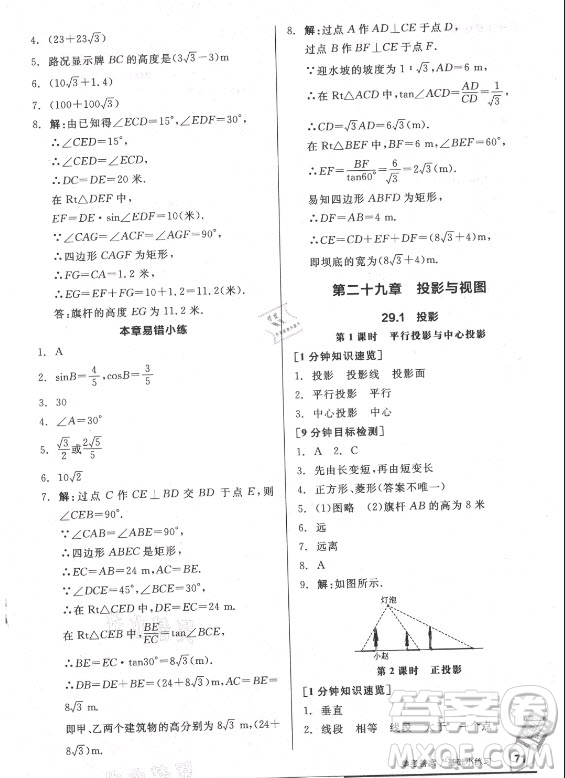 4. (23+23√3)
5. 路况显示牌 BC 的高度是(3√3−3)m
6. (10√3+1.4)
7. (100+100√3)
8. 解:由已知得∠ECD=15°,∠EDF=30°,
∴∠CED=15°,
∴∠CED=∠ECD,
∴DC=DE=20(米).
在 Rt△DEF 中,
EF=DE·sin∠EDF=10(米).
∵∠CAG=∠ACF=∠AGF=90°,
∴四边形 ACFG 为矩形,
∴FG=CA=1.2 米,
∴EG=EF+FG=10+1.2=11.2(米).
答:旗杆的高度为 11.2 米
本章易错小练
1. A
2. sinB=4/5,cosB=3/5
3. 30
4. ∠A=30°
5. √3/2或2√5/5
6. 10√2
7. 解:过点 C 作 CE⊥BD 交 BD 于点 E,则
∠CEB=90°.
∵∠CAB=∠ABE=90°,
∴四边形 ABEC 是矩形,
∴EC=AB=24 m,BE=AC.
∵∠DCE=45°,∠BCE=30°,
∴在 Rt△CED 中,DE=EC=24 m,
在 Rt△CEB 中,BE/EC=tan∠BCE,
∴BE=EC·tan30°=8√3(m).
∴BD=BE+DE=(24+8√3)m,
∴AC=BE=8√3(m).
即甲、乙两个建筑物的高分别为 8√3 m,(24+
8√3)m
8. 解:过点 A 作 AD⊥CF 于点 D,
过点 B 作 BF⊥CF 于点 F.
∵迎水坡的坡度为 1∶√3,
∴在 Rt△ACD 中,tan∠ACD=AD/CD=1/√3,
∴CD=√3AD=6√3(m).
在 Rt△BEF 中,∠BEF=60°,
∴EF=BF/tan60°=6/√3=2√3(m).
易知四边形 ABFD 为矩形,
∴DF=AB=4 m.
∴CE=CD+EF+DF=(8√3+4)m,
即坝底的宽为(8√3+4)m
第二十九章 投影与视图
29.1 投影
第 1 课时 平行投影与中心投影
[1 分钟知识速览]
1. 投影 投影线 投影面
2. 平行投影 平行
3. 中心投影 中心
[9 分钟目标检测]
1. A 2. C
3. 先由长变短,再由短变长
4. 正方形、菱形(答案不唯一)
5. (1)图略 (2)旗杆 AB 的高为 8 米
6. 远
7. 远离
8. A
9. 解:如图所示.
灯泡
小赵
第 2 课时 正投影
[1 分钟知识速览]
1. 垂直
2. 线段 相等 线段 一个点
71